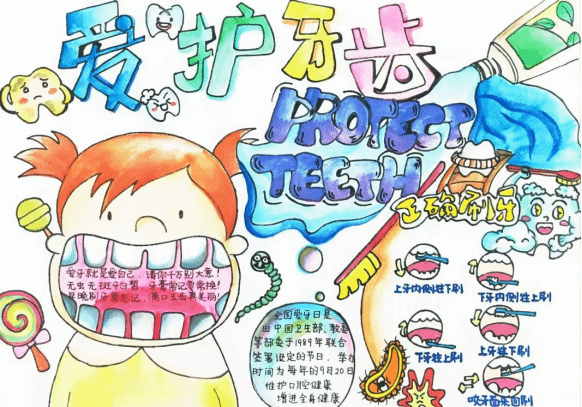 爱护牙齿
PROTECT
TEETH
正确刷牙
爱牙就是爱自己，请你千万别大意！
无虫无斑牙白皙，牙膏常记要常换！
早晚刷牙要想记，满口玉齿真美丽！
上牙内侧往下刷
下牙内侧往上刷
下牙往上刷
上牙往下刷
咬牙面来回刷
全国爱牙日是
由中国卫生部、教委
等部委于1989年联合
签署设定的节日，举办
时间为每年的9月20日
维护口腔健康
增进全身健康